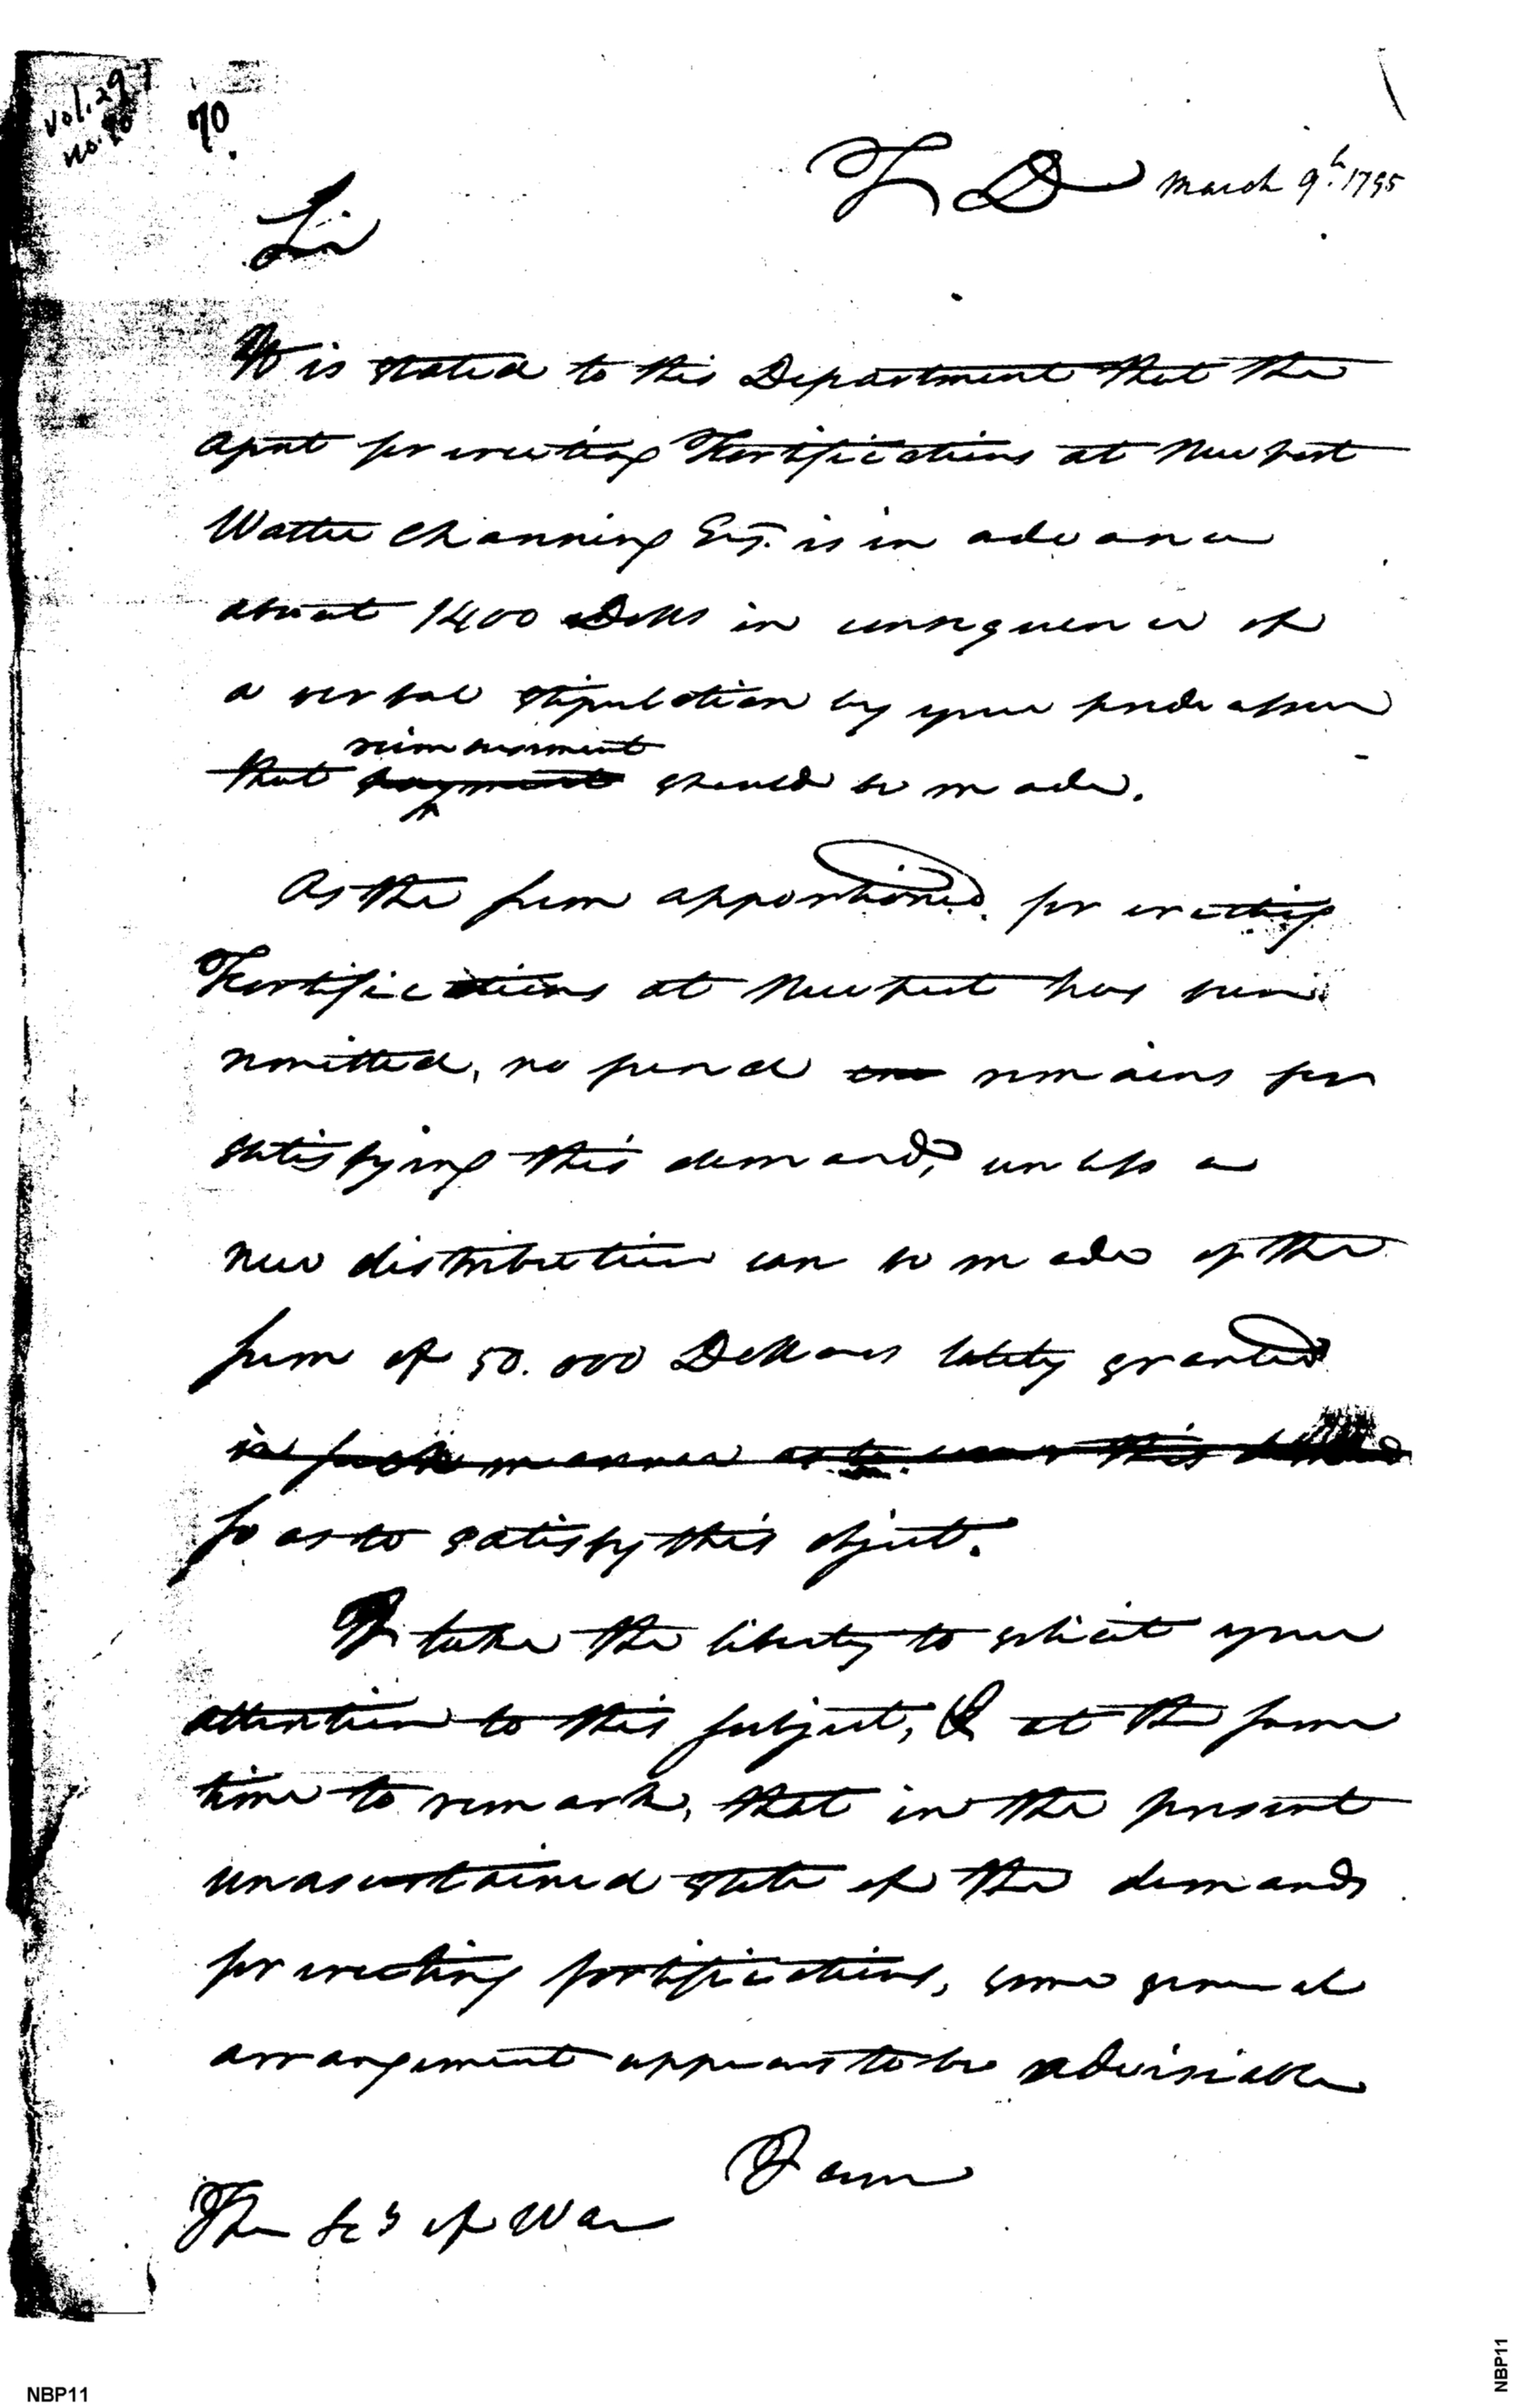 vol. 29
no. 70
70
T D March 9th. 1795
Sir
It is stated to this Department that the
agent for erecting Fortifications at New port
Walter Channing Esq. is in advance
about 1400 Dolls in consequence of
a verbal stipulation by your predecessor
reimbursement
that payment should be made.
As the sum apportioned for erecting
Fortifications at New port has been
remitted, no fund remains for
satisfying this demand, unless a
new distribution can be made of the
sum of 50.000 Dollars lately granted
in such manner as to cover this
so as to satisfy this object.
I take the liberty to solicit your
attention to this subject, & at the same
time to remark, that in the present
unascertained state of the demands
for erecting fortifications, some general
arrangement appears to be adviseable
I am
The Secy of War
NBP11
NBP11